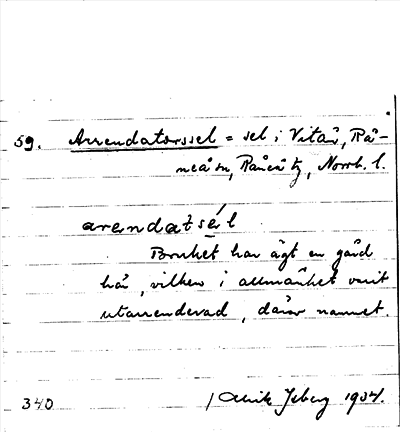 59. Arrendatorssel = sel i Vitån, Rå-
neå sn, Råneå tg, Norrb. l.
arendatsél
har ägt en gård
här, vilken i allmänhet varit
utarrenderad, därav namnet.
340 / Ulrik 1904.